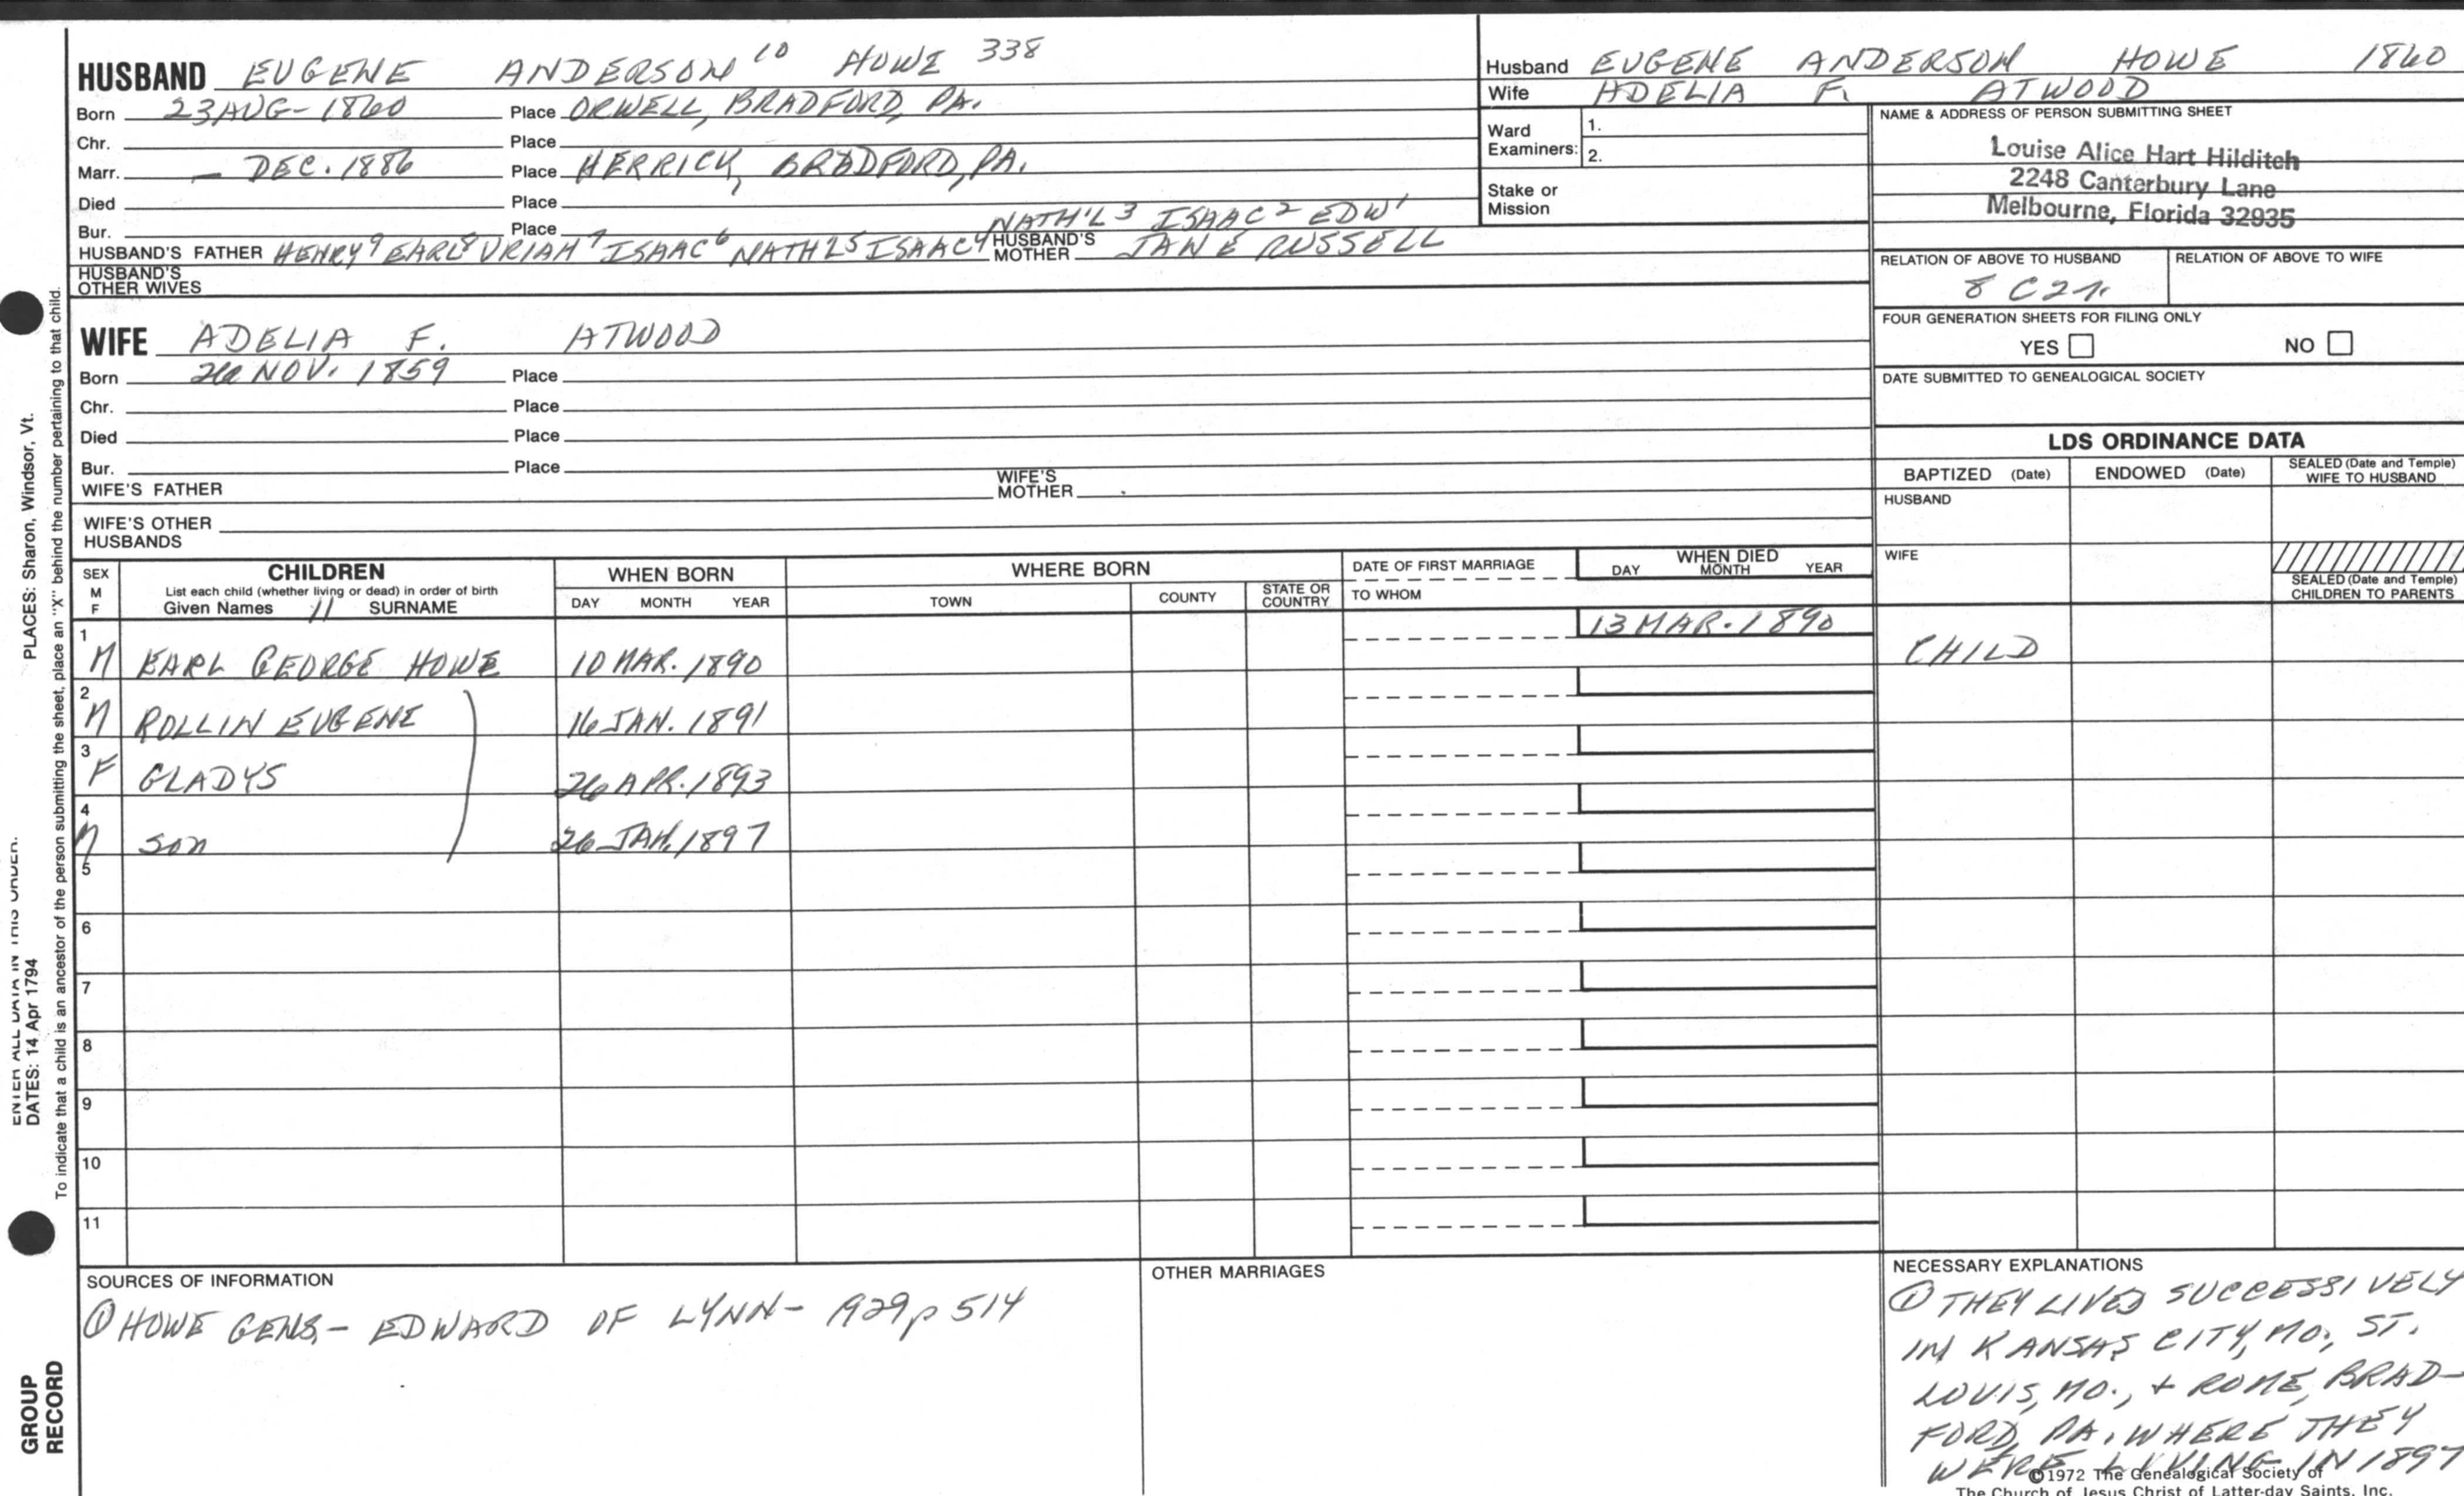 HUSBAND EUGENE ANDERSON 10 HOWE 338
Born 23 AUG - 1860 Place ORWELL, BRADFORD, PA.
Chr. Place
Marr. — DEC. 1886 Place HERRICK, BRADFORD, PA.
Died Place
Bur. Place
NATH'L 3 ISAAC 2 EDW 1
HUSBAND'S FATHER HENRY 9 EARL 8 URIAH 7 ISAAC 6 NATH'L 5 ISAAC 4 HUSBAND'S MOTHER JANE RUSSELL
HUSBAND'S OTHER WIVES
WIFE ADELIA F. ATWOOD
Born 26 NOV. 1859 Place
Chr. Place
Died Place
Bur. Place
WIFE'S FATHER WIFE'S MOTHER
WIFE'S OTHER HUSBANDS
Husband EUGENE ANDERSON HOWE 1860
Wife ADELIA F. ATWOOD
Ward Examiners: 1.
2.
Stake or Mission
NAME & ADDRESS OF PERSON SUBMITTING SHEET
Louise Alice Hart Hilditch
2248 Canterbury Lane
Melbourne, Florida 32935
RELATION OF ABOVE TO HUSBAND RELATION OF ABOVE TO WIFE
8 C 2 r.
FOUR GENERATION SHEETS FOR FILING ONLY
YES NO
DATE SUBMITTED TO GENEALOGICAL SOCIETY
LDS ORDINANCE DATA
BAPTIZED (Date) ENDOWED (Date) SEALED (Date and Temple) WIFE TO HUSBAND
HUSBAND
WIFE
SEALED (Date and Temple) CHILDREN TO PARENTS
SEX M F CHILDREN WHEN BORN WHERE BORN DATE OF FIRST MARRIAGE WHEN DIED
List each child (whether living or dead) in order of birth
Given Names 11 SURNAME DAY MONTH YEAR TOWN COUNTY STATE OR COUNTRY TO WHOM DAY MONTH YEAR
1 M EARL GEORGE HOWE 10 MAR. 1890 13 MAR. 1890 CHILD
2 M ROLLIN EUGENE 16 JAN. 1891
3 F GLADYS 26 APR. 1893
4 M son 26 JAN. 1897
5
6
7
8
9
10
11
SOURCES OF INFORMATION
① HOWE GENS. - EDWARD OF LYNN - 1929 p 514
OTHER MARRIAGES
NECESSARY EXPLANATIONS
① THEY LIVED SUCCESSIVELY
IN KANSAS CITY, MO., ST.
LOUIS, MO., + ROME, BRAD-
FORD, PA. WHERE THEY
WERE LIVING IN 1897
©1972 The Genealogical Society of
The Church of Jesus Christ of Latter-day Saints, Inc.
ENTER ALL DATA IN THIS ORDER.
DATES: 14 Apr 1794
PLACES: Sharon, Windsor, Vt.
To indicate that a child is an ancestor of the person submitting the sheet, place an "X" behind the number pertaining to that child.
GROUP
RECORD